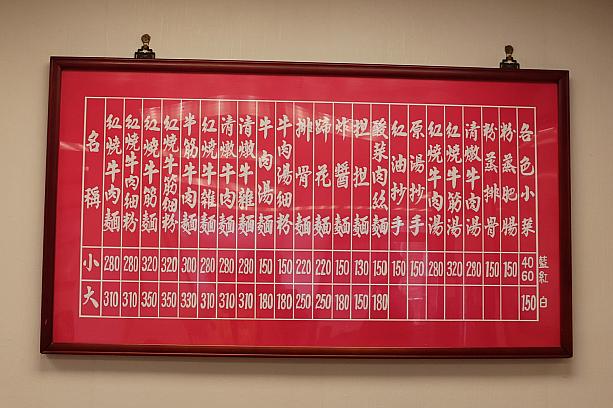 名稱 小 大
紅燒牛肉麵 280 310
紅燒牛肉細粉 280 310
紅燒牛筋麵 320 350
紅燒牛筋細粉 320 350
半筋半肉麵 300 330
紅燒牛雜麵 280 310
清燉牛肉麵 280 310
清燉牛雜麵 280 310
牛肉湯麵 150 180
牛肉湯細粉 150 180
排骨麵 220 250
蹄花麵 220 250
炸醬麵 150 180
担担麵 130 150
酸菜肉絲麵 150 180
紅油抄手 150
原湯抄手 150
紅燒牛肉湯 280
紅燒牛筋湯 320
清燉牛肉湯 280
粉蒸排骨 150
粉蒸肥腸 150
各色小菜 40 60 150
藍 紅 白